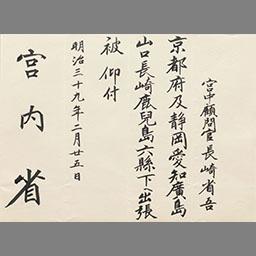 宮中顧問官長崎省吾
京都府及靜岡愛知廣島
山口長崎鹿兒島六縣下ヘ出張
被仰付
明治三十九年二月廿五日
宮內省